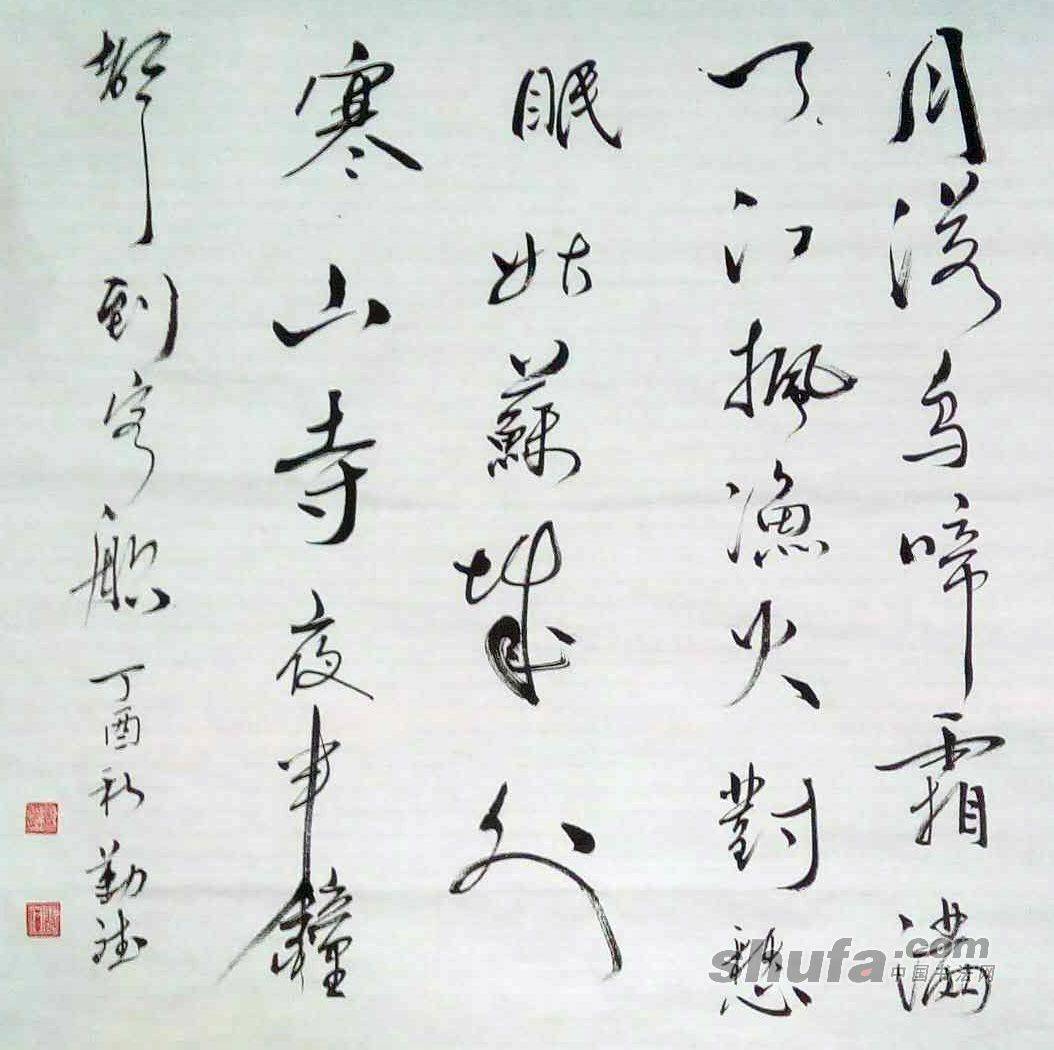 月落烏啼霜滿
天江楓漁火對愁
眠姑蘇城外
寒山寺夜半鐘
聲到客船 丁酉秋 勤
shufa.com
中国书法网